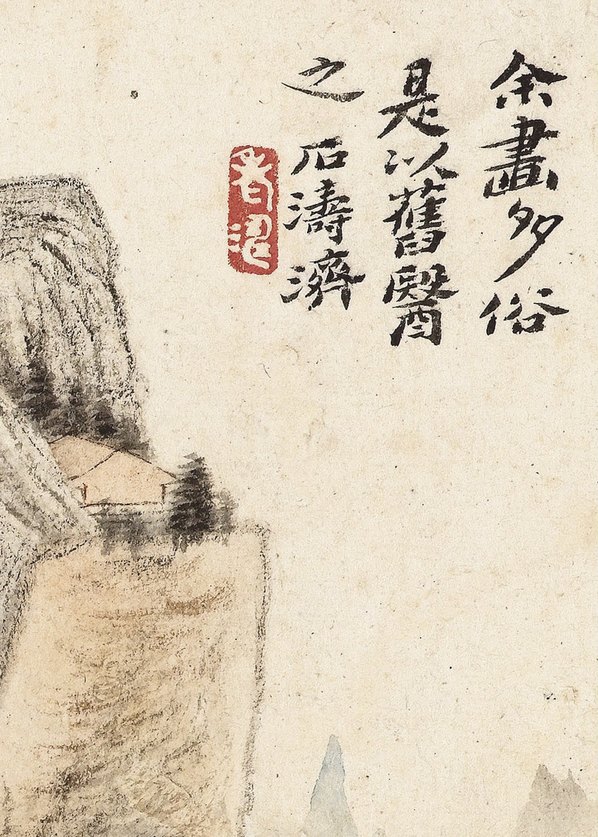 余畫多俗
是以舊醫
之 石濤濟